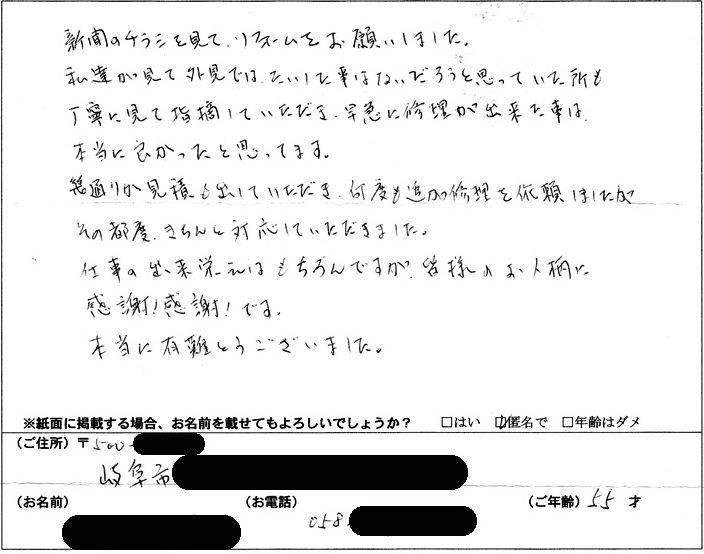 新聞のチラシを見て、リフォームをお願いしました。
私達が見て外見では、たいした事はないだろうと思っていた所も
丁寧に見て指摘していただき、早急に修理が出来た事は
本当に良かったと思ってます。
幾通りか見積も出していただき、何度も追加修理を依頼しましたが
その都度、きちんと対応していただきました。
仕事の出来栄えはもちろんですが、皆様のお人柄に
感謝!感謝!です。
本当に有難とうございました。
※紙面に掲載する場合、お名前を載せてもよろしいでしょうか? □はい □匿名で □年齢はダメ
(ご住所)〒500-
岐阜市
(お名前) (お電話) 058 (ご年齢) 55 才